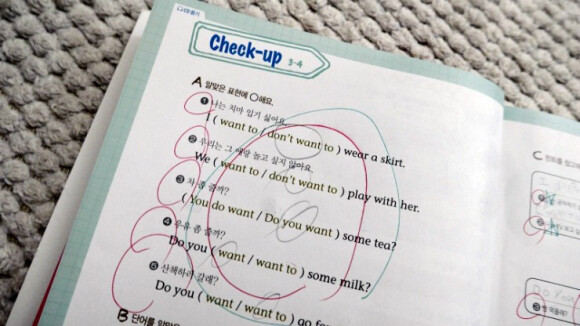 Check-up 3-4
A 알맞은 표현에 ○해요.
1 나는 치마 입기 싫어요.
I ( want to / don't want to ) wear a skirt.
2 우리는 그 애랑 놀고 싶지 않아요.
We ( want to / don't want to ) play with her.
3 차 좀 줄까?
( You do want / Do you want ) some tea?
4 우유 좀 줄까?
Do you ( want / want to ) some milk?
5 산책하러 갈래?
Do you ( want / want to ) go
B 단어를
C